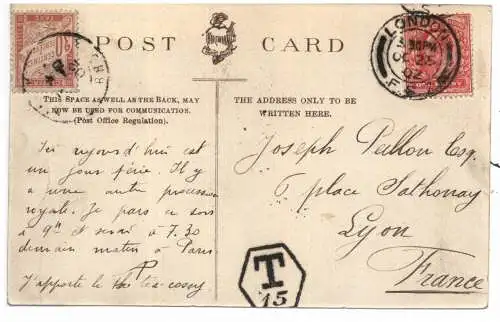 POST CARD
LONDON
OC 25
02
THIS SPACE AS WELL AS THE BACK, MAY
NOW BE USED FOR COMMUNICATION.
(Post Office Regulation).
THE ADDRESS ONLY TO BE
WRITTEN HERE.
Ici aujourd'hui est
un jour férié. Il y
a une autre procession
royale. Je pars ce soir
à 9h et serai à 7.30
demain matin à Paris.
J'apporte le tea-cosey
Joseph Pallon Esq.
6 place Sathonay
Lyon
France
T
15